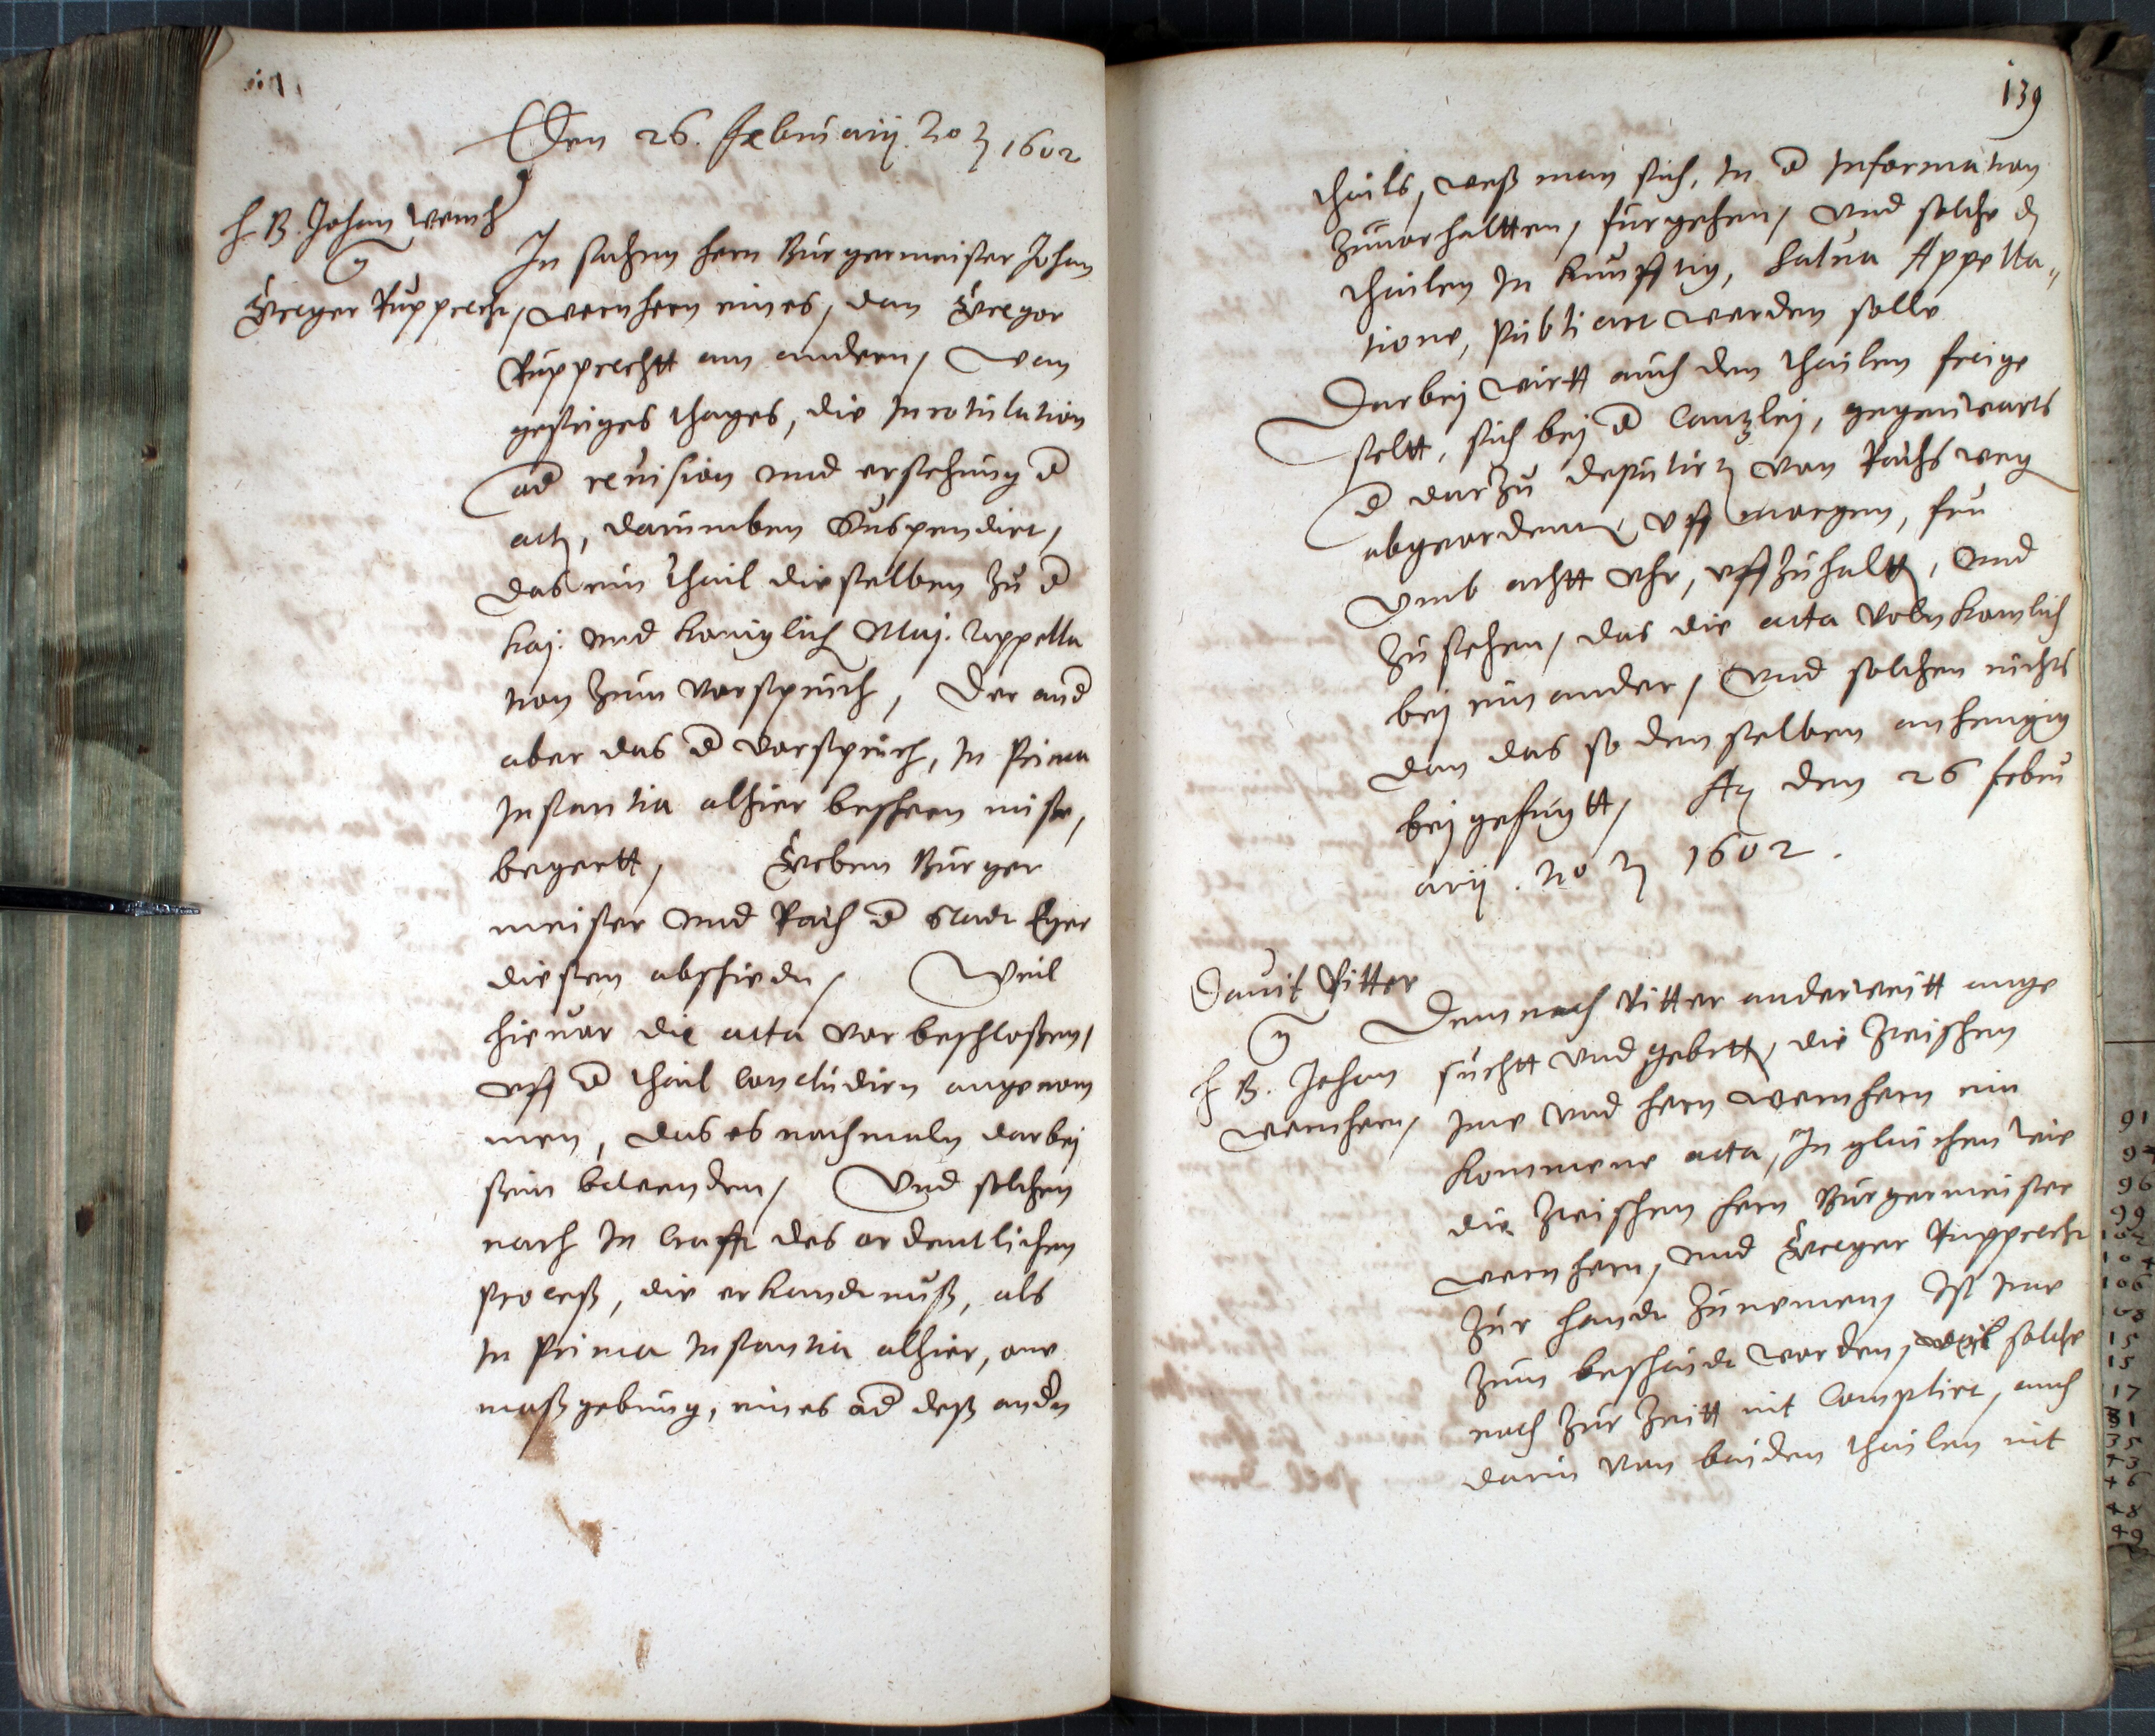 Den 26. Februarij. Ao 1602
H. B. Johan Wernher
In sachen hern Burgermeister Johan
Greger Rupprecht, Wernhern eines, dan Gregor
Rupprechtt am andern, Von
gestriges thages, die Inrotulation
ad reuision vnd ersehung d
act, darumben Suspendirt,
das ein theil dieselben zu d
Kay. vnd Koniglich May. Appella
tion zum Vorspruch, Der and
aber das d Vorspruch, In Prima
Instantia alhier beschern muste,
begertt, Geben Burger
meister vnd Rath d Stadt Eger
diesen abschiedt, Weil
hieuor die acta vor beschloßen,
vff d theil Concludirn angenom
men, das es nochmaln darbej
sein bewenden, Vnd solchem
nach In Crafft des ordentlichen
Proceß, die erkandtnuß, als
In Prima Instantia alhier, one
maßgebung, eines od deß andn
139
theils, weß man sich, In d Information
zuuorhaltten, furgehen, vnd solche d
theilen In Kunfftig, Salua Appella„
tione, Publicirt werden solle
Darbej wirtt auch den theilen freige
steltt, sich bej d Cantzley, gegenwarts
d darzu deputirt von Raths weg
abgeordent, vff morgen, fru
vmb achtt vhr, vffzuhaltt, vnd
zusehen, das die acta volnkomlich
bej einander, Vnd solchen nichts
dan das so denselben anhengig
beygefugtt, Act den 26 Febru
arij. Ao 1602.
Dauit Ritter
Demnach Ritter anderweitt ange
H B. Johan suchtt vnd gebett, die Zwischen
Wernhern, Ime vnd hern Wernhern ein
kommene acta, In gleichen wie
die Zwischen hern Burgermeister
Wernhern, vnd Greger Rupprecht
zur handt zunemen, Ist Ime
zum bescheidt worden, weil solche
noch zur Zeitt nit Complirt, auch
darin von beiden theilen nit
91
96
99
106
15
15
17
31
35
48
49